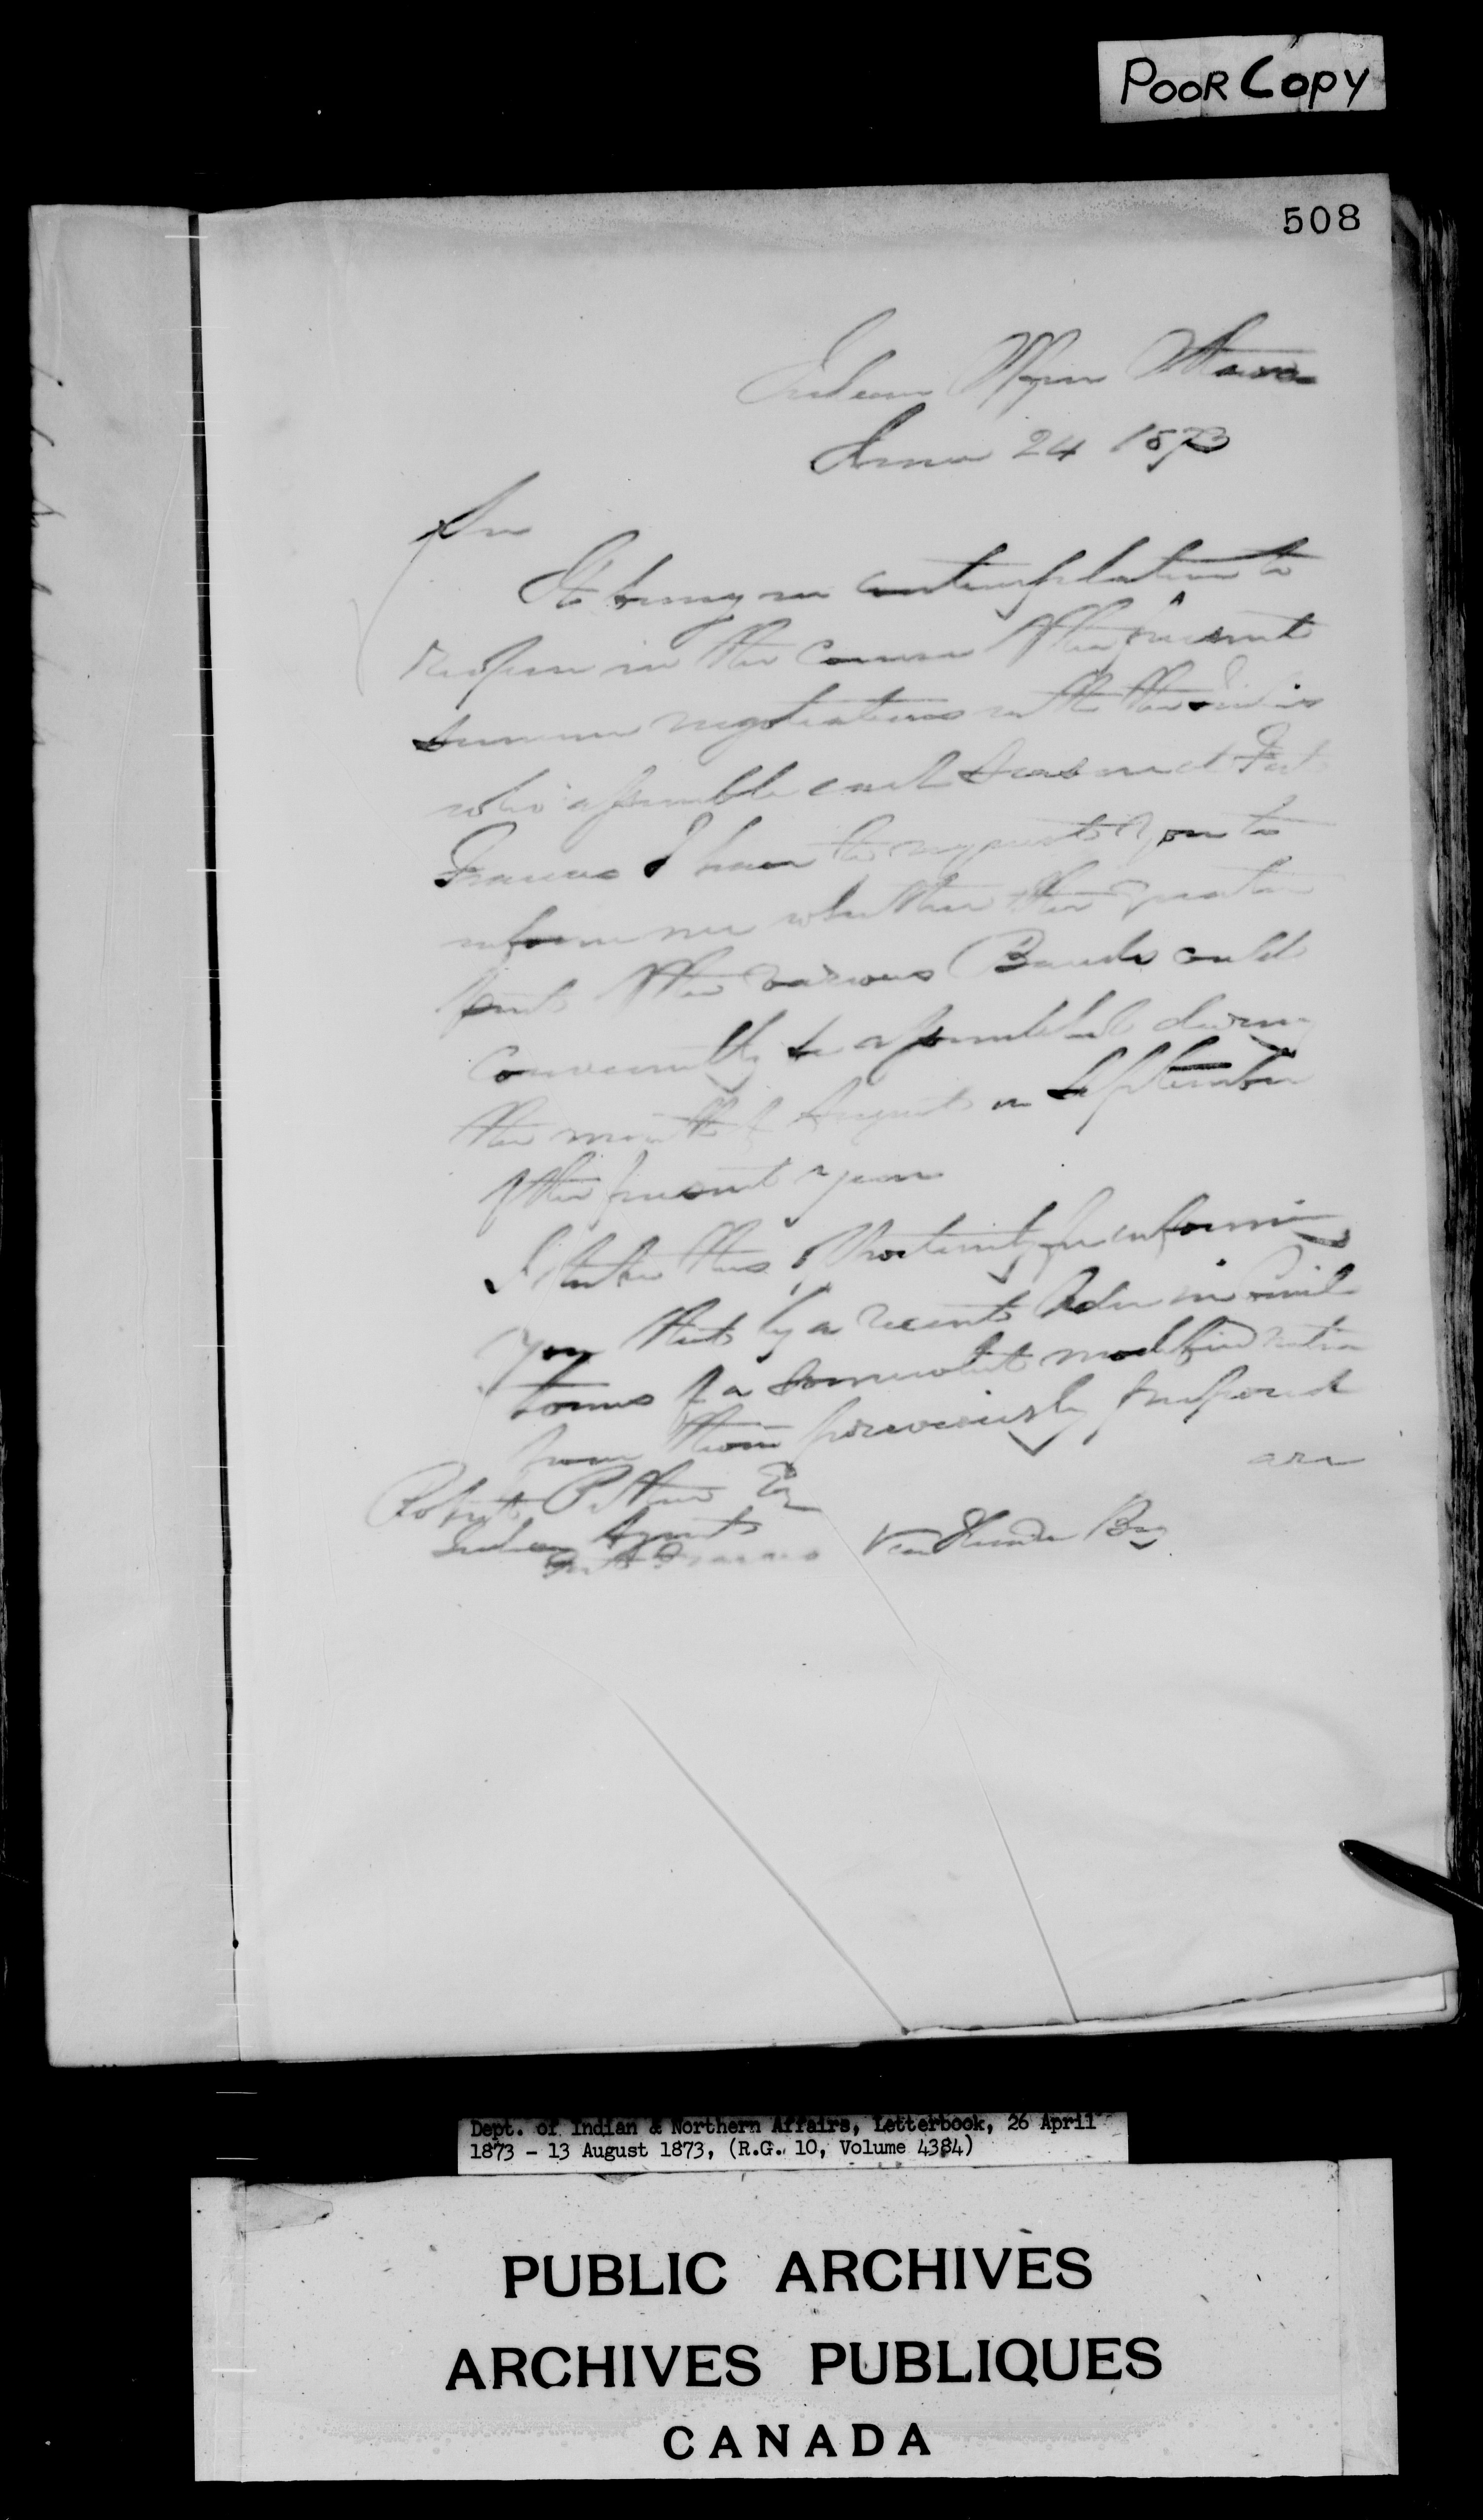 POOR COPY
508
Indian Office Ottawa
June 24 1873
Sir
It being in contemplation to
reopen in the course of the present
summer negotiations with the Indians
who assemble each Season at Fort
Frances I have to request you to
inform me whether the greater
part of the various Bands could
conveniently be assembled during
the month of August or September
of the present year
I take this opportunity for informing
you that by a recent Order in Council
terms of a somewhat modified nature
from those previously proposed
are
Robert Pither Esq
Indian Agent
Fort Frances via Thunder Bay
Dept. of Indian & Northern Affairs, Letterbook, 26 April
1873 - 13 August 1873, (R.G. 10, Volume 4384)
PUBLIC ARCHIVES
ARCHIVES PUBLIQUES
CANADA